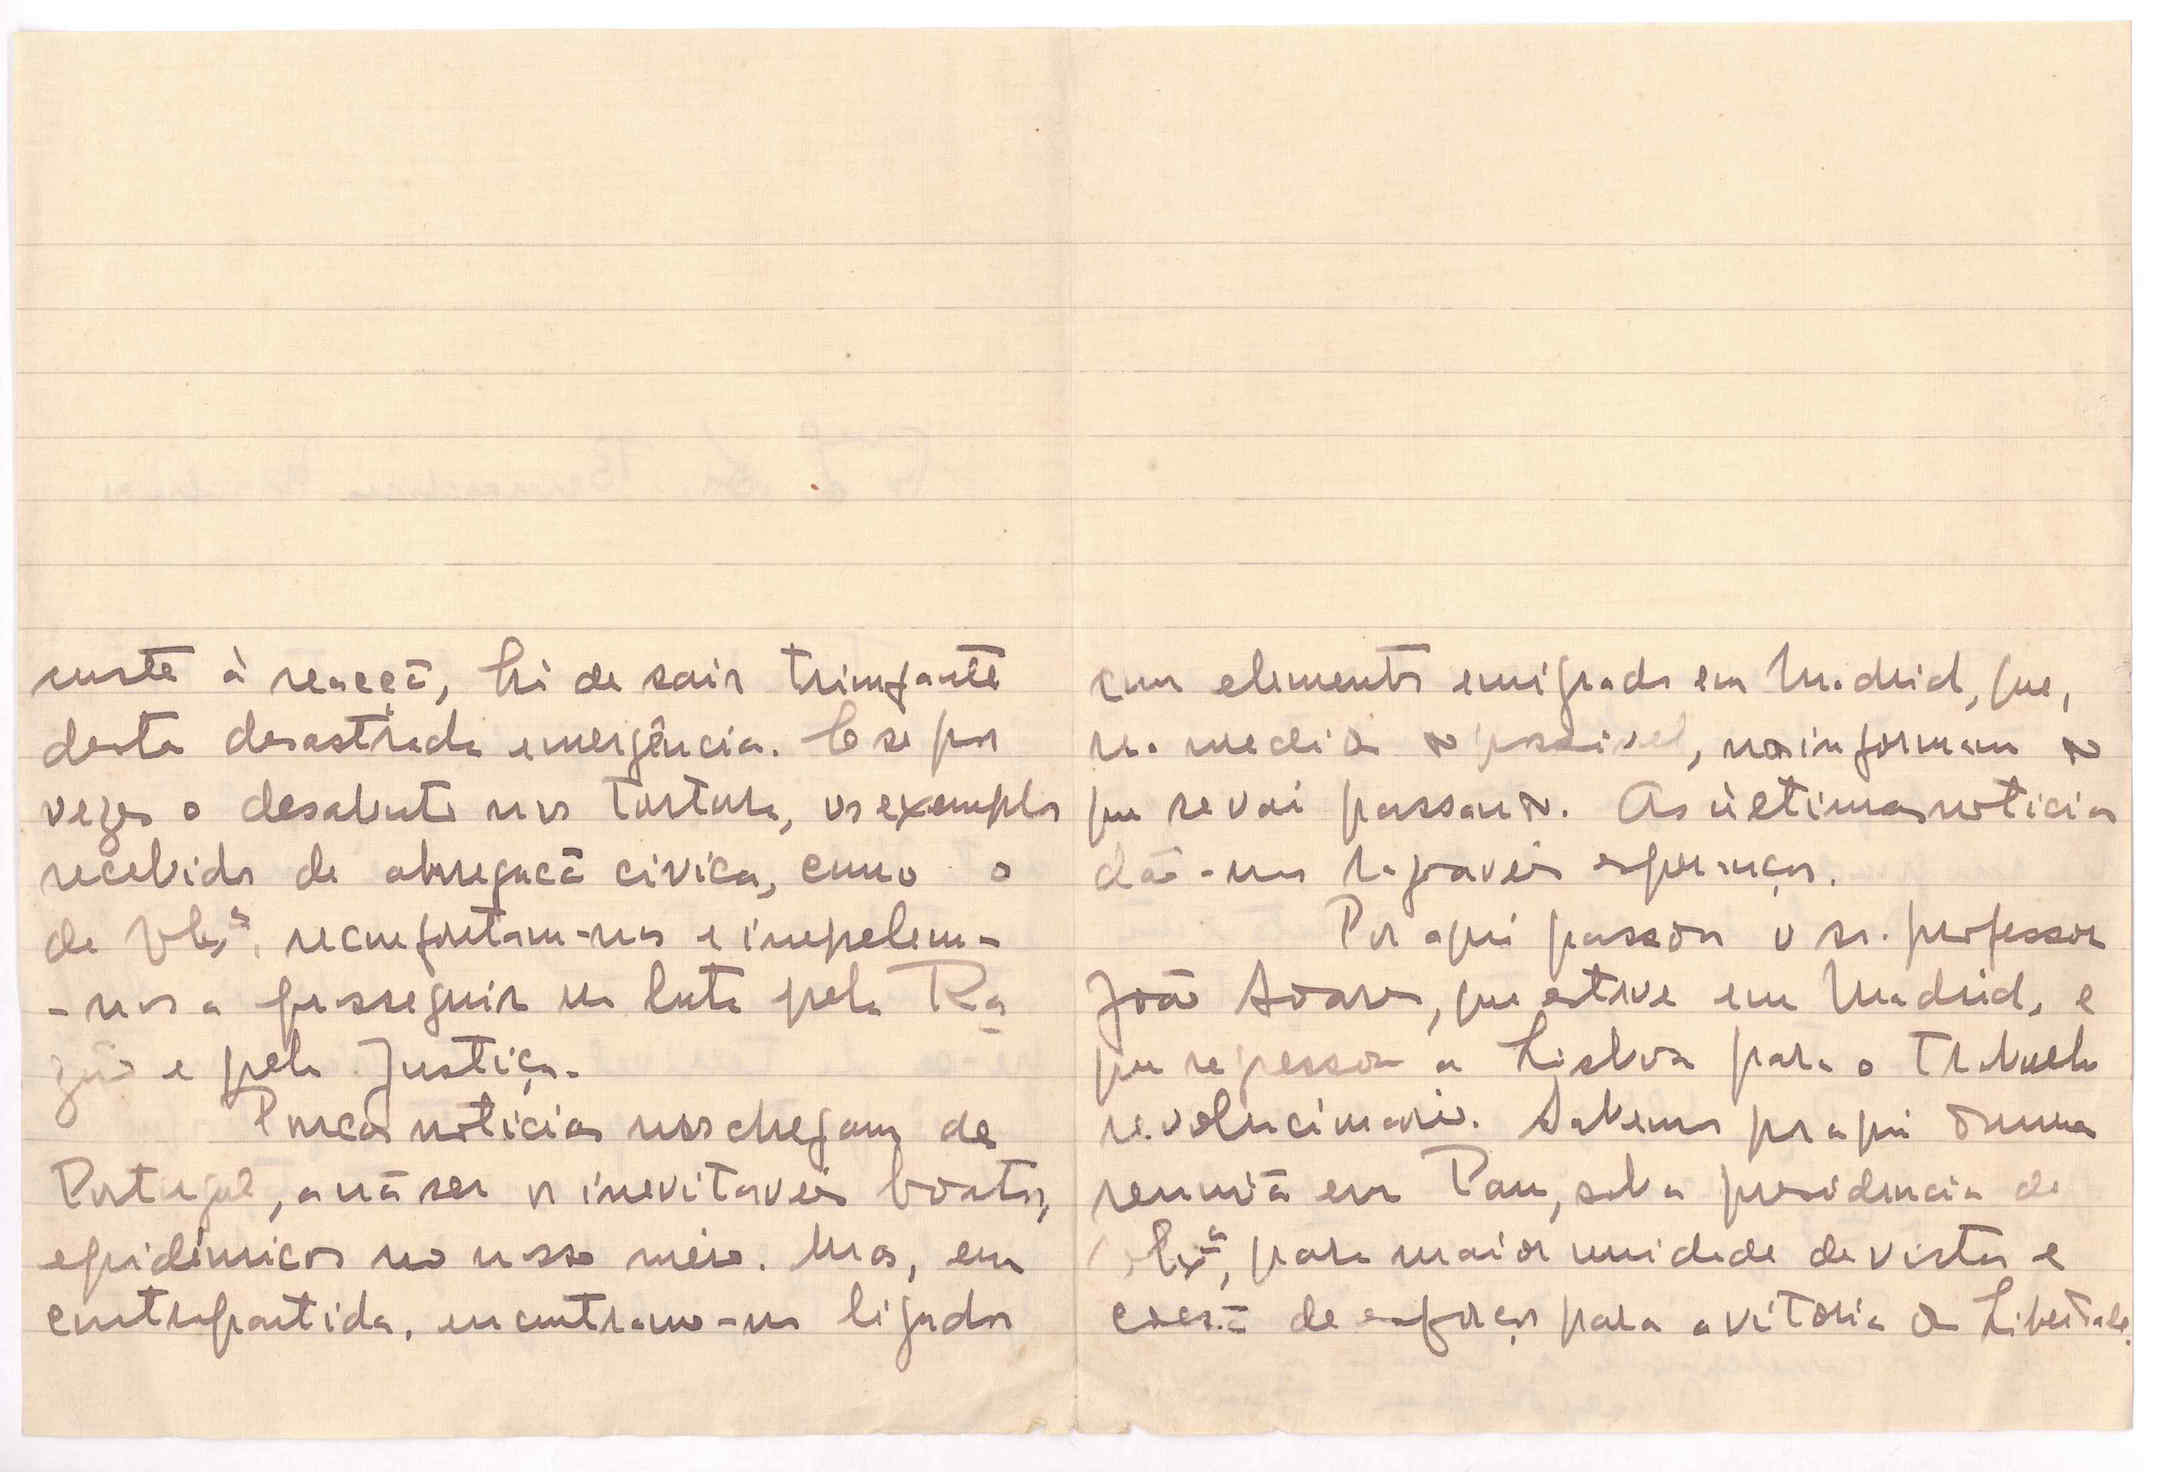 custe à reacçã, há de sair triunfante
desta desastrada emergência. E se por
vezes o desalento nos tortura, os exemplos
recebidos de abnegaçã civica, como o
de V. Ex.ª, reconfortam-nos e impelem-
-nos a prosseguir na luta pela Ra
zão e pela Justiça.
Poucas noticias nos chegam de
Portugal, a nã ser os inevitaveis boatos,
epidémicos no nosso meio. Mas, em
contrapartida, encontramo-nos ligados
com elementos emigrados em Madrid, que,
na medida do possivel, nos informam do
que se vai passando. As últimas noticias
dão-nos rasoaveis esperanças.
Por aqui passou o sr. professor
João Soares, que esteve em Madrid, e
que regressou a Lisboa para o trabalho
revolucionario. Sabemos por aqui duma
reuniã em Pau, sob a presidencia de
V. Ex.ª, para maior unidade de vistas e
coesã de esforços para a vitoria da Liberdade.